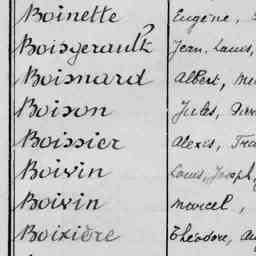 Boinette Eugène,
Boisgerault Jean, Louis,
Boisnard Albert,
Boison Jules,
Boissier Alexis,
Boivin Louis, Joseph,
Boivin Marcel,
Boixière Théodore,